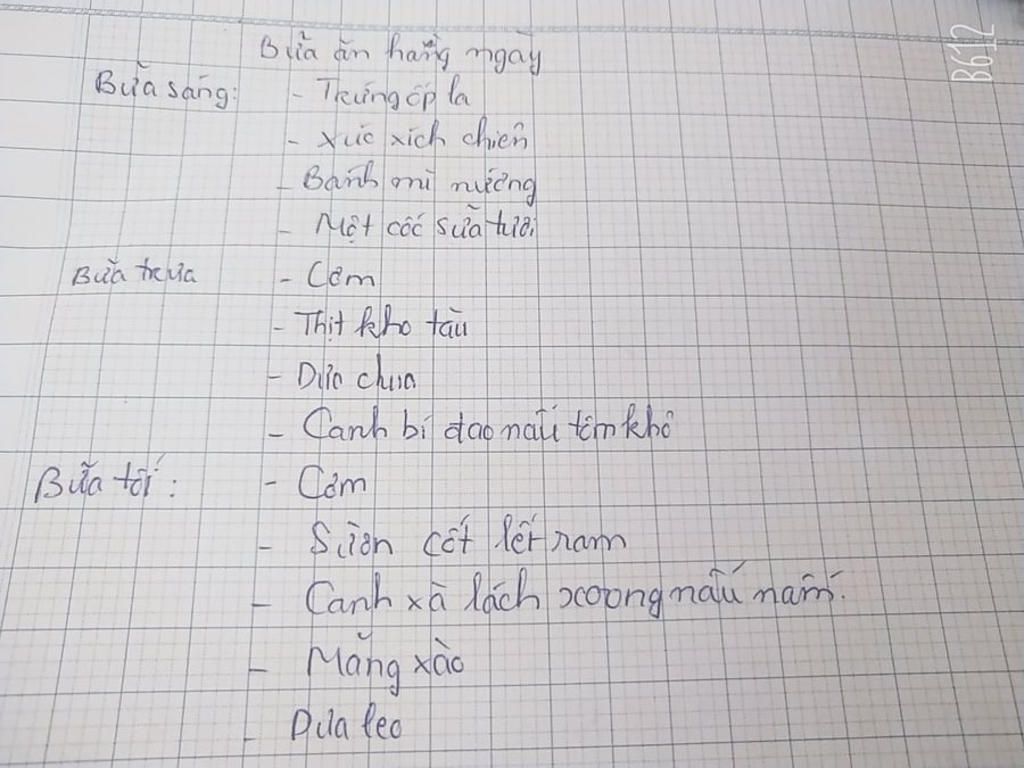 Bữa ăn hàng ngày
Bữa sáng: - Trứng ốp la
- Xúc xích chiên
- Bánh mì nướng
- Một cốc sữa tươi
Bữa trưa - Cơm
- Thịt kho tàu
- Dưa chua
- Canh bí đao nấu tôm khô
Bữa tối: - Cơm
- Sườn cốt lết ram
- Canh xà lách xoong nấu nấm.
- Măng xào
- Dưa leo
B612